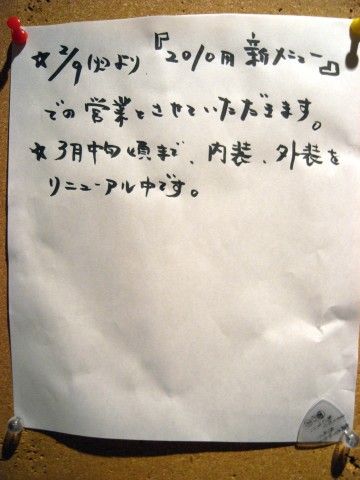 ☆ 2/9(火)より『2010月 新メニュー』
での営業とさせていただきます。
☆ 3月中旬頃まで、内装、外装を
リニューアル中です。